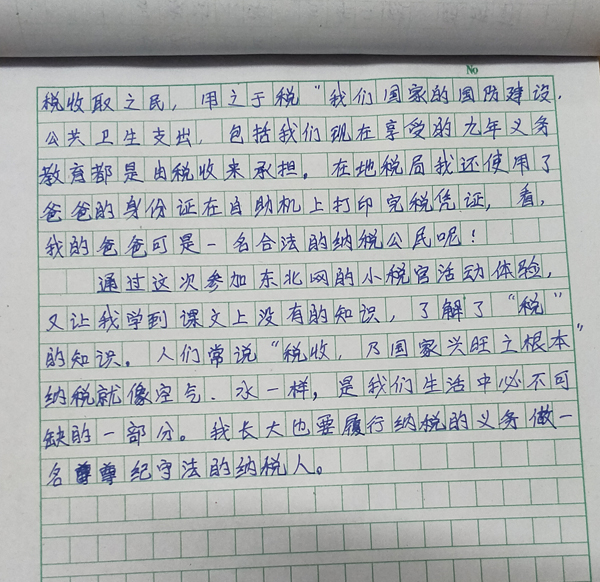 No
税收取之民，用之于税“我们国家的国防建设.
公共卫生支出，包括我们现在享受的九年义务
教育都是由税收来承担。在地税局我还使用了
爸爸的身份证在自助机上打印完税凭证，看，
我的爸爸可是一名合法的纳税公民呢！
通过这次参加东北网的小税官活动体验，
又让我学到课文上没有的知识，了解了“税”
的知识。人们常说“税收，乃国家兴旺之根本”
纳税就像空气、水一样，是我们生活中必不可
缺的一部分。我长大也要履行纳税的义务做一
名尊尊纪守法的纳税人。